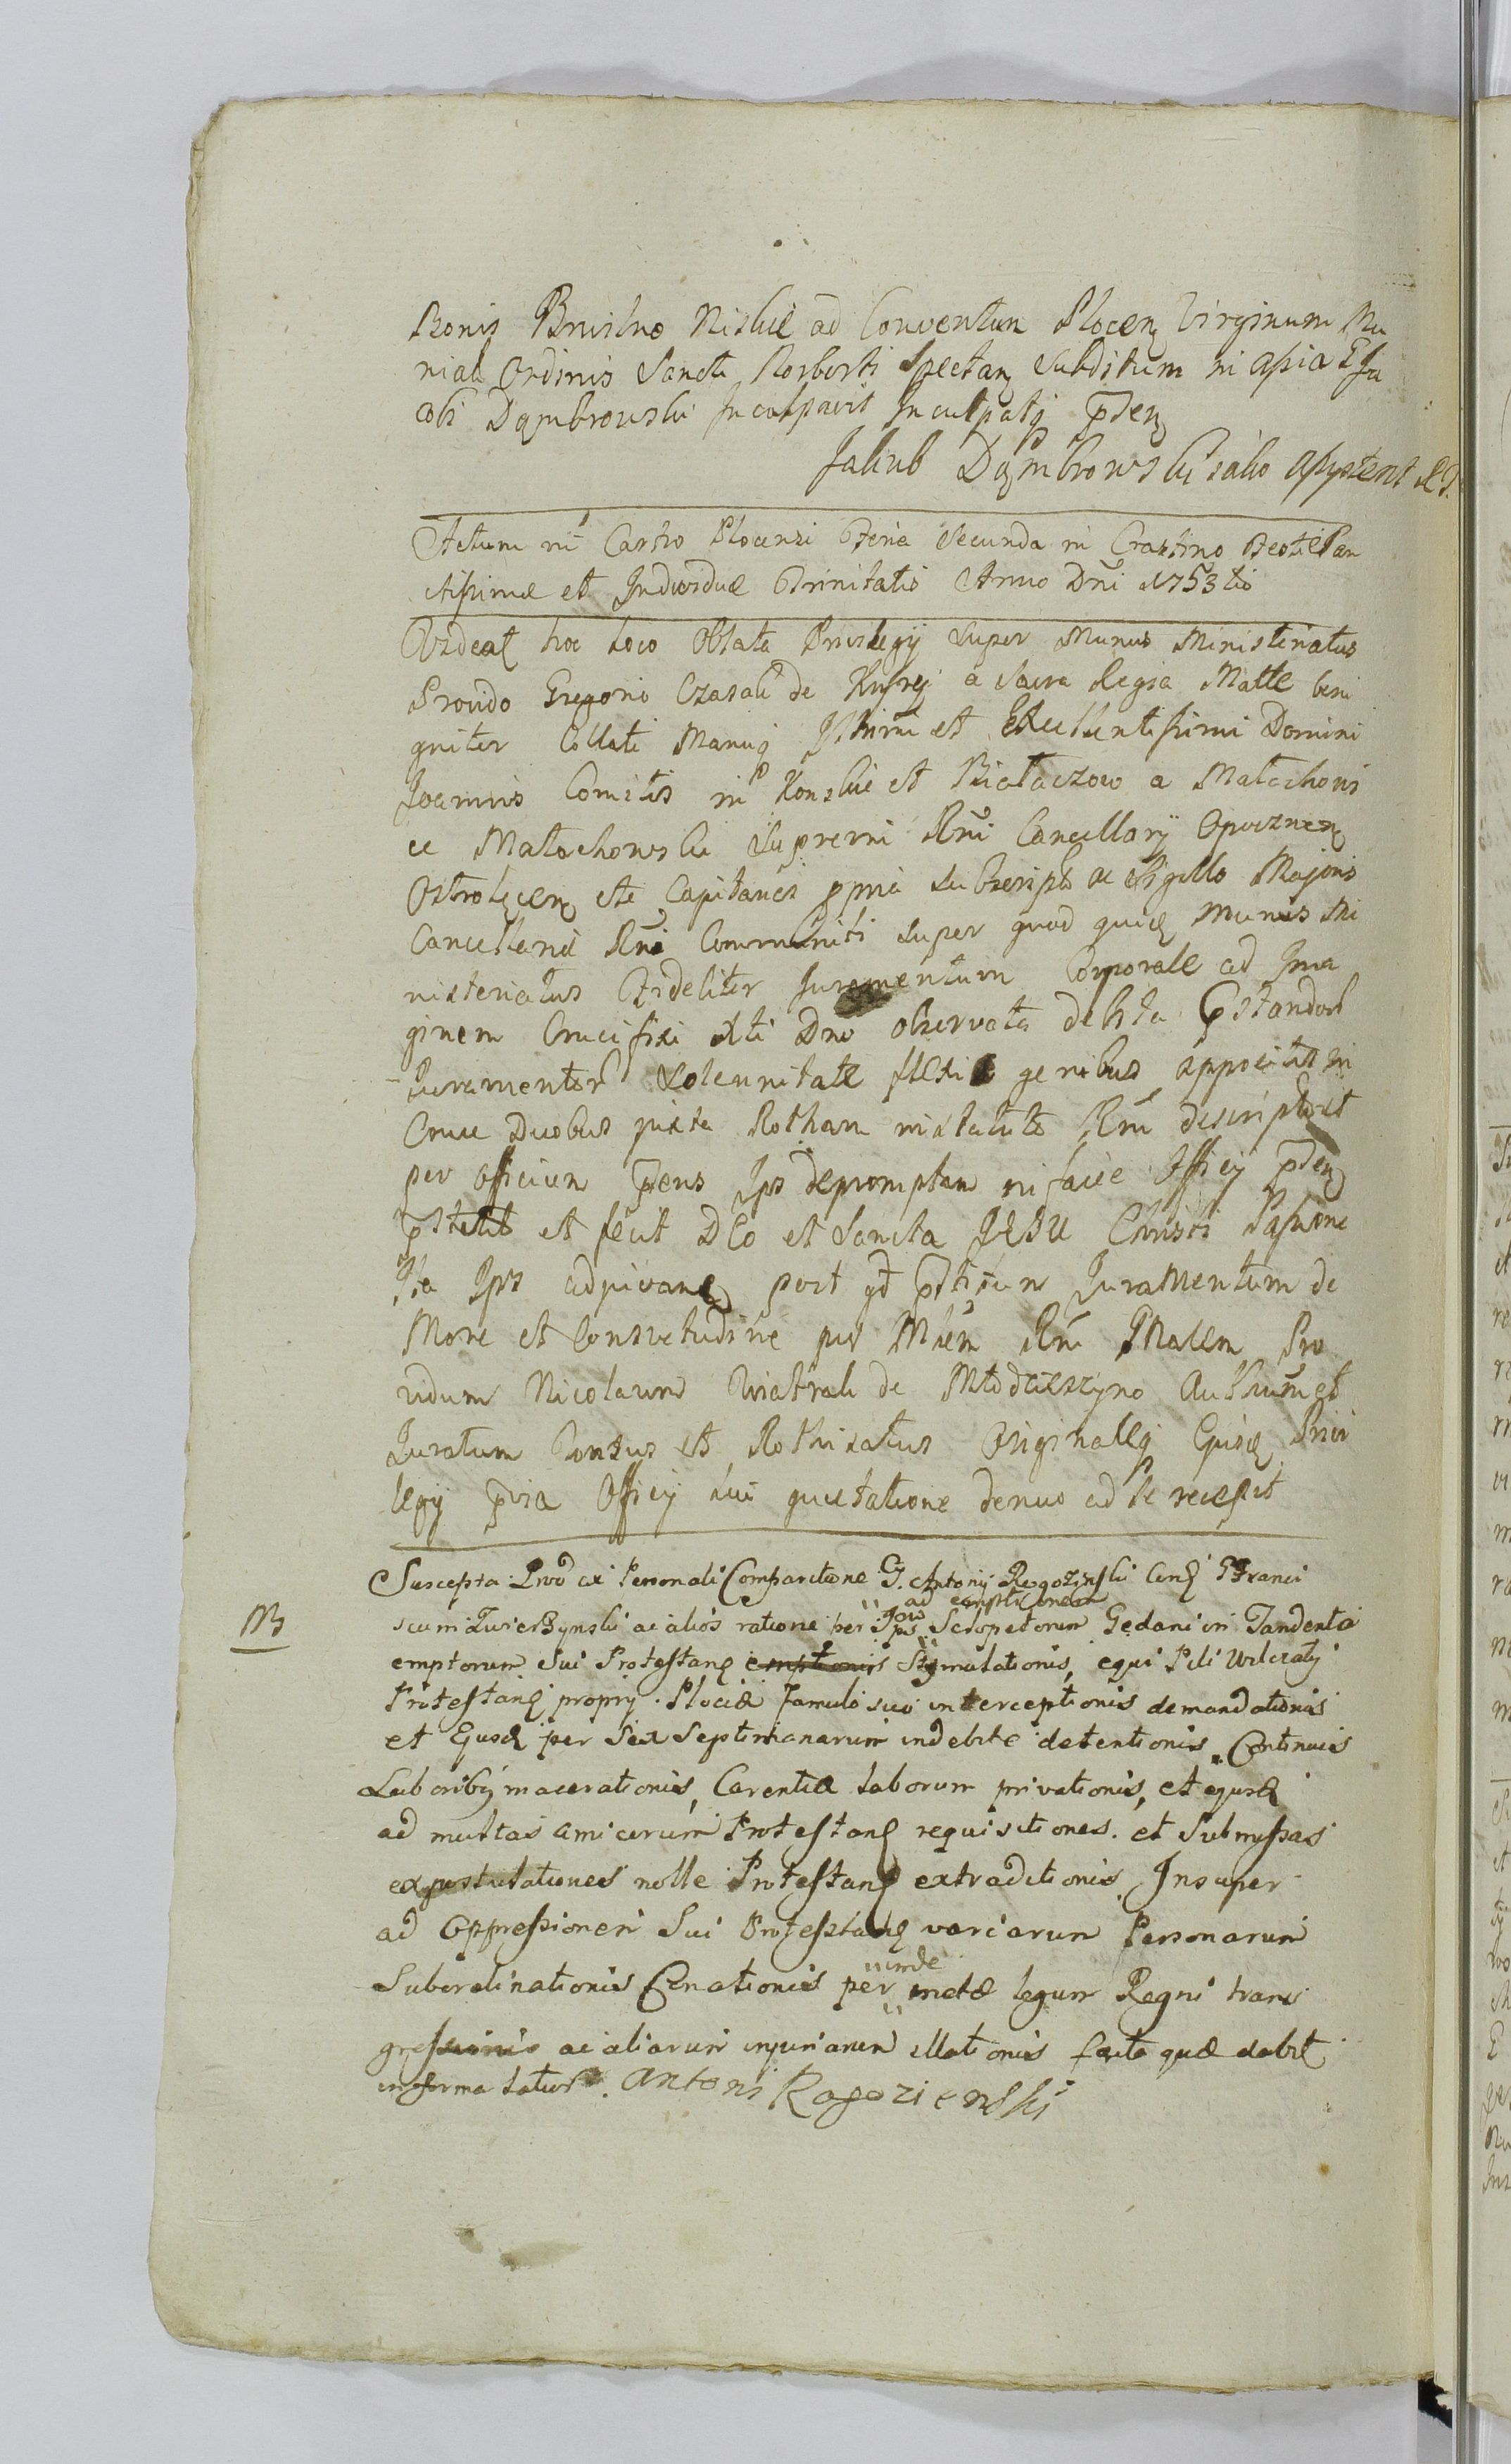 Bonis Brwilno Niskie ad Conventum Plocen Virginum Mo
nial Ordinis Sancti Norberti Spectan Subditum in assia G Ja
cobi Dąmbrowski Inculpavit Inculpatq pden
Jakub Dąmbrowski iako assystent
Actum in Castro Plocensi Feria Secunda in Crastino Festi San
ctissimæ et Individuæ Trinitatis Anno Dni 1753tio
Videat hoc loco Oblata Privilegij Super Munus Ministeriatus
Provido Gregorio Czasak de a Sacra Regia Matte beni
gniter Collati Manuq Illmi et Excellentissimi Domini
Joannis Comitis in Konskie et Białaczow a Małachowi
ce Małachowski Supremi Rni Cancellarij Opocznen
Ostrołęcen etc Capitanei ppria Subscript ac Sigillo Majoris
Cancellariæ Rni Communiti Super quod quidę munus Mi
nisteriatus Fideliter Juramentum Corporale ad Ima
ginem Crucifixi Xti Dni observata debita pstandor
Juramentor Solennitate flexis genibus appositis in
Cruce Duobus juxta Rotham in statuto Rni descriptā et
per Officium pens Ips depromptam in facie Officij pden
pstitit et fecit DEO et Sancta JESU Christi Passione
Ita Ips adjuvan post qd pstitum Juramentum de
More et Consvetudine per Mrem Rni Gnalem Pro
vidum Nicolaum Wiatrak de Młodzieszyno Authum et
Juratum Tonsus et Rothisatus Originaleq Ejusd Privi
legij pvia Officij sui quietatione denuo ad se recepit
Suscepta Prod ex Personali Comparitione G. Antonij Rogoziński Con G Franci
scum Zwierzynski ac alios ratione per Ipos ad emptionem Sclopetorum Gedani in Tandenta
emptorum Sui Protestanę emptionis Stymulationis, equi Pili
Protestanę proprij Plociæ famulo suo interceptionis demandationis
et Ejusd per Sex Septimanarum indebite detentionis Continuis
Laboribq macerationis, Carentiæ laborum privationis, et ejusd
ad multas amicorum Protestanę requisitiones. et Submissas
expostulationes nolle Protestanę extraditionis Insuper
ad Oppressionem Sui Protestanę variarum Personarum
Subordinationis Conationis per inde metæ legum Regni trans
gressionis ac aliarum injuriarum illationis facta quæ dabit
informa latior. Antoni Rogozienski